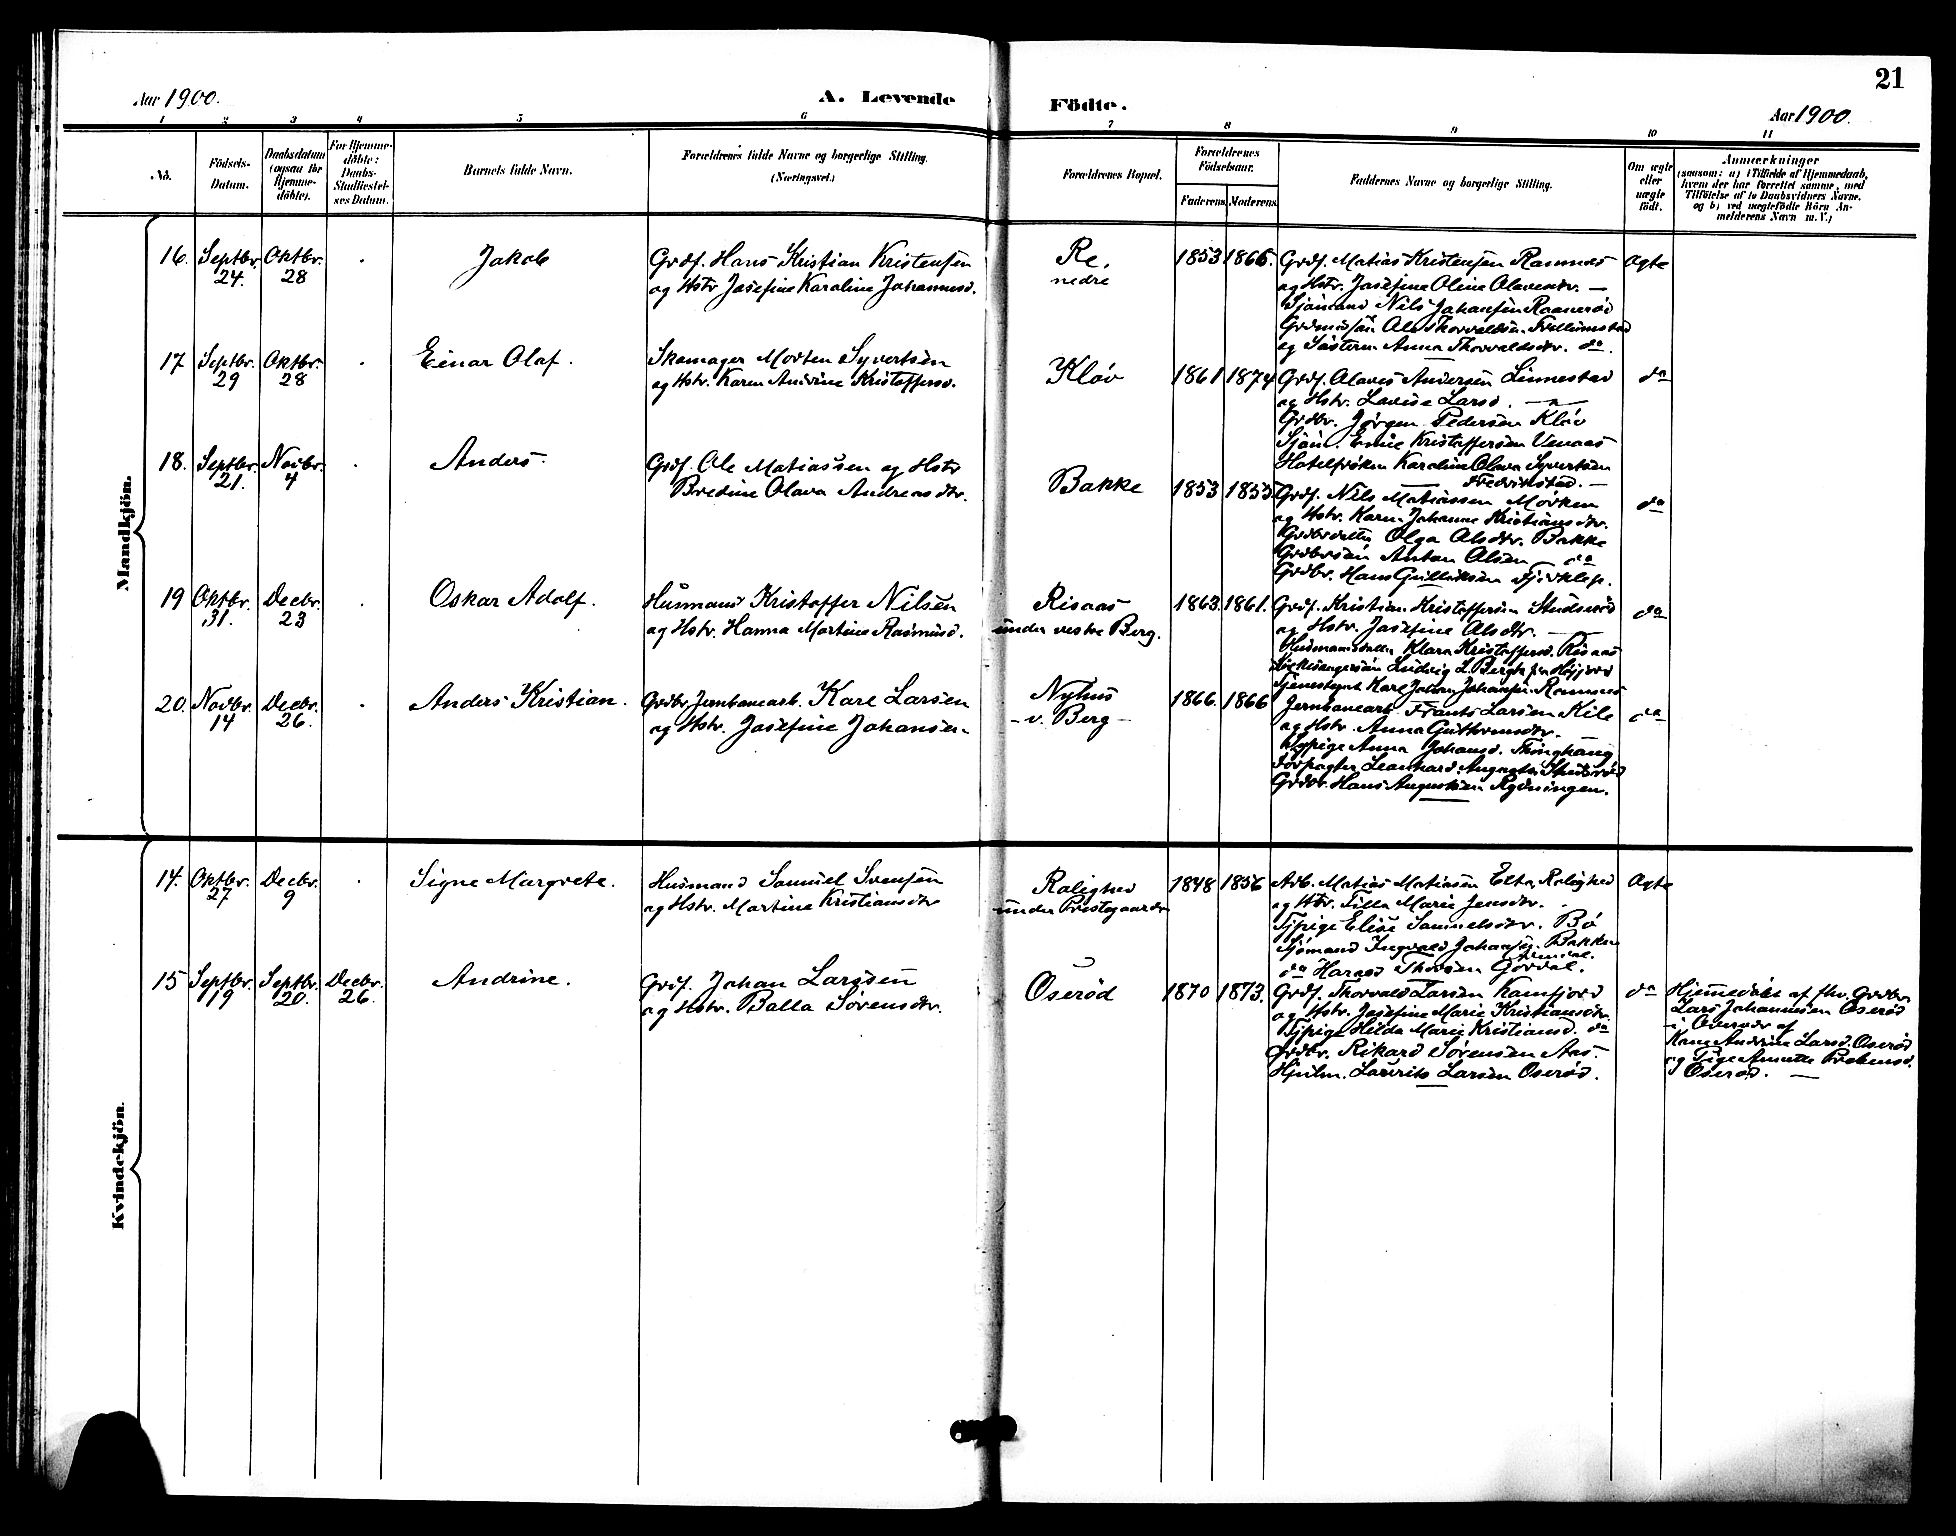 21
Aar 1900.
A. Levende Födte.
Aar 1900.
1 2 3 4 5 6 7 8 9 10 11
No.
Födsels-
Datum.
Daabsdatum
(ogsaa for
Hjemme-
döbte).
For Hjemme-
döbte:
Daabs-
Stadfæstel-
ses Datum.
Barnets fulde Navn.
Forældrenes fulde Navne og borgerlige Stilling.
(Næringsvei.)
Forældrenes Bopæl.
Forældrenes
Födselsaar.
Faderens. Moderens.
Faddernes Navne og borgerlige Stilling.
Om ægte
eller
uægte
födt.
Anmærkninger
(saasom: a) i Tilfælde af Hjemmedaab,
hvem der har forrettet samme, med
Tilföielse af to Daabsvidners Navne,
og b) ved uægtefödte Börn An-
melderens Navn m. V.)
Mandkjön.
16. Septbr. 24. Oktbr. 28 Jakob
Grdf. Hans Kristian Kristensen
og Hstr. Josefine Karoline Johannesd.
Re,
nedre
1853 1866.
Grdf. Matias Kristensen Ramnes
og Hstr. Josefine Oline Olavesdr. —
Sjömand Nils Johansen Raanerød
Ole Thorvaldsen
og Søsteren Anna Thorvaldsdr. do.
Ægte
17 Septbr. 29 Oktbr. 28 Einar Olaf.
Skomager Morten Syvertsen
og Hstr. Karen Andrine Kristoffersd.
Kløv
1861 1874
Grdf. Olaves Andersen Linnestad
og Hstr. Lovise Larsd. —
Grdbr. Jørgen Pedersen Kløv
Sjöm. Emil Kristoffersen Venaas
Hotelfrøken Karoline Olava Syvertsen
Fredrikstad. —
do
18. Septbr. 21. Novbr. 4 Anders.
Grdf. Ole Matiassen og Hstr
Bredine Olava Andreasdtr.
Bakke
1853 1855
Grdf. Nils Matiassen Mørken
og Hstr. Karen Johanne Kristiansdtr.
Olga Olsdtr. Bakke
Anton Olsen do
Grdbr. Hans Gulliksen
do
19 Oktbr. 31. Decbr. 23 Oskar Adolf.
Husmand Kristoffer Nilsen
og Hstr. Hanna Martine Rasmusd.
Risaas
under vestre Berg.
1863. 1861.
Grdf. Kristian Kristoffersen Studsrød
og Hstr. Josefine Olsdtr. —
Klara Kristoffersd. Risaas
Ludvig L. Bergh fra Høijord
Karl Johan Johansen Ramnes
do
20. Novbr. 14 Decbr. 26. Anders Kristian.
Grdbr. Jernbanearb. Karl Larsen
og Hstr. Josefine Johansen
Nyhus
- v. Berg -
1866. 1866
Jernbanearb. Frants Larsen Kile
og Hstr. Anna Guttormsdtr.
Anna Johansd. Thinghaug
Forpagter Leonhard
Grdbr. Hans Augustsen Rydningen.
do
Kvindekjön.
14. Oktbr. 27 Decbr. 9 Signe Margrete.
Husmand Samuel Svensen
og Hstr. Martine Kristiansdtr
Rolighed
under Prestegaarden
1848 1856
Arb. Matias Matiasen Rolighed
og Hstr. Marie Jensdtr.
Tjpige Elise Samuelsdtr. Bø
Sjømand Ingvald Johansen Bakken
do Harald
Ægte
15 Septbr. 19 Septbr. 20. Decbr. 26. Andrine.
Grdf. Johan Larssen
og Hstr. Balla Sørensdtr.
Oserød
1870 1873.
Grdf. Thorvald Larsen Kamfjord
og Hstr. Josefine Marie Kristiansdtr.
Tjpige Hilda Marie Kristiansd. do
Grdbr. Rikard Sørensen Aas.
Laurits Larsen Oserød.
do
Hjemmedøbt af fhv. Grdbr.
Lars Johannesen Oserød
i Overvær af
Andrine Larsd. Oserød
og Pige Annette
Oserød. —